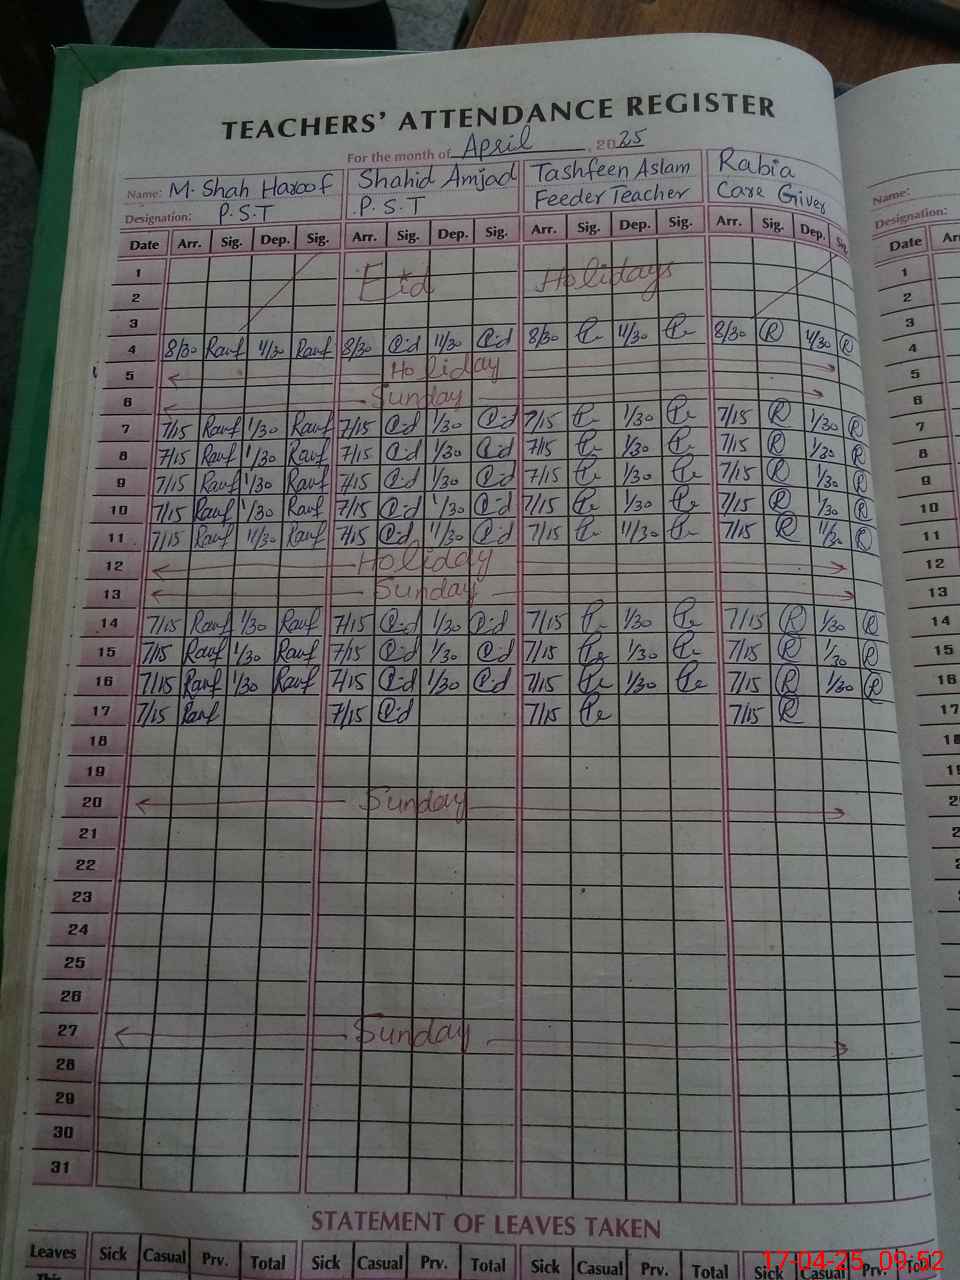 TEACHERS' ATTENDANCE REGISTER
For the month of April, 2025
Name: M. Shah Haroof Shahid Amjad Tashfeen Aslam Rabia Name:
Designation: P.S.T P.S.T Feeder Teacher Care Giver Designation:
Date Arr. Sig. Dep. Sig. Arr. Sig. Dep. Sig. Arr. Sig. Dep. Sig. Arr. Sig. Dep. Sig. Date
1 Eid Holidays 1
2 2
3 3
4 8/30 Rauf 11/30 Rauf 8/30 11/30 8/30 11/30 8/30 R 11/30 R 4
5 Holiday 5
6 Sunday 6
7 7/15 Rauf 1/30 Rauf 7/15 1/30 7/15 1/30 7/15 R 1/30 R 7
8 7/15 Rauf 1/30 Rauf 7/15 1/30 7/15 1/30 7/15 R 1/30 R 8
9 7/15 Rauf 1/30 Rauf 7/15 1/30 7/15 1/30 7/15 R 1/30 R 9
10 7/15 Rauf 1/30 Rauf 7/15 1/30 7/15 1/30 7/15 R 1/30 R 10
11 7/15 Rauf 11/30 Rauf 7/15 11/30 7/15 11/30 7/15 R 11/30 R 11
12 Holiday 12
13 Sunday 13
14 7/15 Rauf 1/30 Rauf 7/15 1/30 7/15 1/30 7/15 R 1/30 R 14
15 7/15 Rauf 1/30 Rauf 7/15 1/30 7/15 1/30 7/15 R 1/30 R 15
16 7/15 Rauf 1/30 Rauf 7/15 1/30 7/15 1/30 7/15 R 1/30 R 16
17 7/15 Rauf 7/15 7/15 7/15 R 17
18
19
20 Sunday
21
22
23
24
25
26
27 Sunday
28
29
30
31
STATEMENT OF LEAVES TAKEN
Leaves Sick Casual Prv. Total Sick Casual Prv. Total Sick Casual Prv. Total Sick Casual Prv. Total
17-04-25 09:52